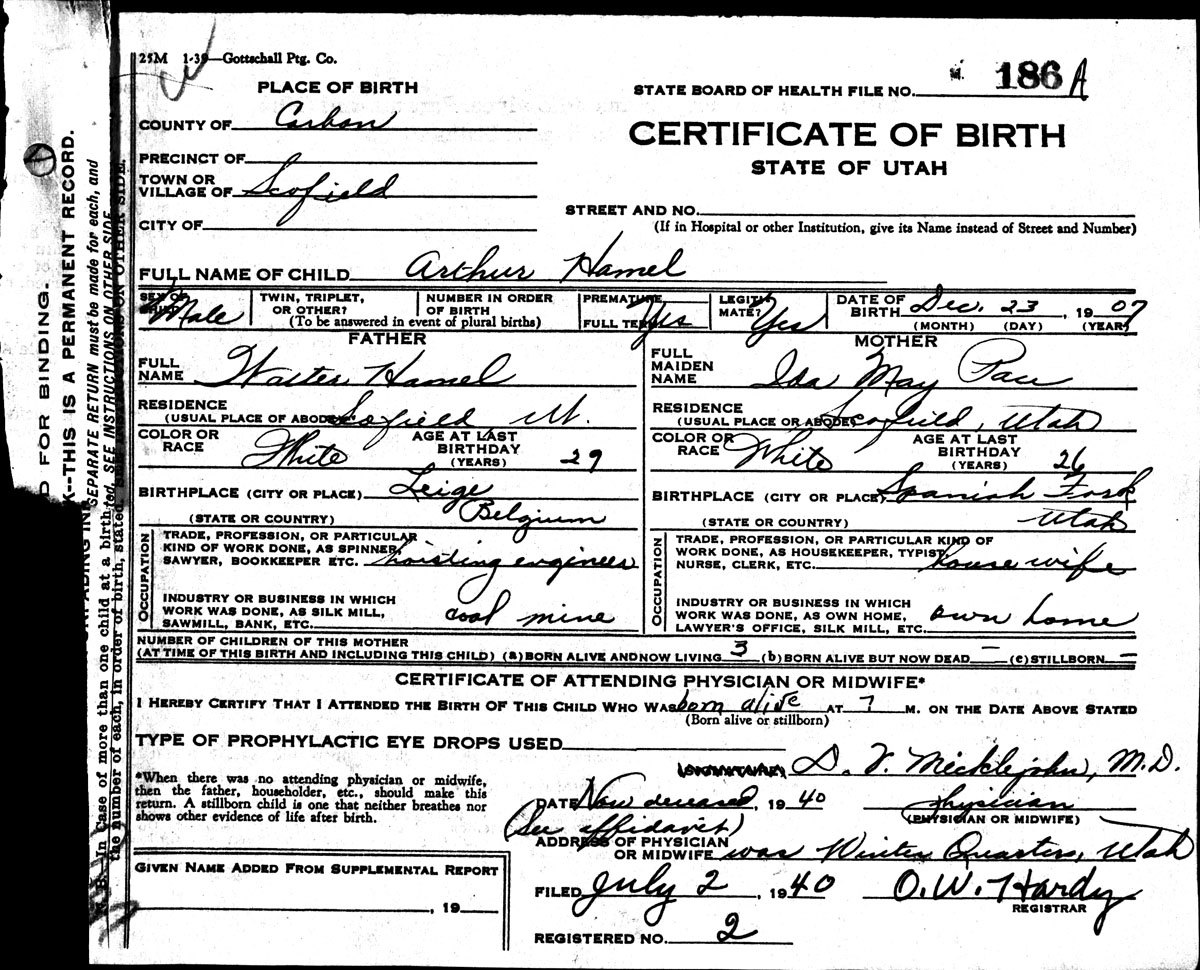 25M 1-39—Gottschall Ptg. Co.
PLACE OF BIRTH
STATE BOARD OF HEALTH FILE NO. 186 A
COUNTY OF Carbon
CERTIFICATE OF BIRTH
STATE OF UTAH
PRECINCT OF
TOWN OR
VILLAGE OF Scofield
STREET AND NO.
CITY OF
(If in Hospital or other Institution, give its Name instead of Street and Number)
FULL NAME OF CHILD Arthur Hamel
SEX OF
Male
TWIN, TRIPLET,
OR OTHER?
NUMBER IN ORDER
OF BIRTH
(To be answered in event of plural births)
PREMATURE
FULL TERM Yes
LEGITI-
MATE? Yes
DATE OF
BIRTH Dec. 23, 1907
(MONTH) (DAY) (YEAR)
FATHER
FULL
NAME Walter Hamel
RESIDENCE
(USUAL PLACE OF ABODE) Scofield Ut.
COLOR OR
RACE White
AGE AT LAST
BIRTHDAY
(YEARS) 29
BIRTHPLACE (CITY OR PLACE) Leige
(STATE OR COUNTRY) Belgium
OCCUPATION
TRADE, PROFESSION, OR PARTICULAR
KIND OF WORK DONE, AS SPINNER,
SAWYER, BOOKKEEPER ETC. hoisting engineer
INDUSTRY OR BUSINESS IN WHICH
WORK WAS DONE, AS SILK MILL,
SAWMILL, BANK, ETC. coal mine
MOTHER
FULL
MAIDEN
NAME Ida May Pace
RESIDENCE
(USUAL PLACE OR ABODE) Scofield, Utah
COLOR OR
RACE White
AGE AT LAST
BIRTHDAY
(YEARS) 26
BIRTHPLACE (CITY OR PLACE) Spanish Fork
(STATE OR COUNTRY) Utah
OCCUPATION
TRADE, PROFESSION, OR PARTICULAR KIND OF
WORK DONE, AS HOUSEKEEPER, TYPIST,
NURSE, CLERK, ETC. house wife
INDUSTRY OR BUSINESS IN WHICH
WORK WAS DONE, AS OWN HOME,
LAWYER'S OFFICE, SILK MILL, ETC. own home
NUMBER OF CHILDREN OF THIS MOTHER
(AT TIME OF THIS BIRTH AND INCLUDING THIS CHILD) (a) BORN ALIVE AND NOW LIVING 3 (b) BORN ALIVE BUT NOW DEAD — (c) STILLBORN —
CERTIFICATE OF ATTENDING PHYSICIAN OR MIDWIFE*
I HEREBY CERTIFY THAT I ATTENDED THE BIRTH OF THIS CHILD WHO WAS born alive AT ? M. ON THE DATE ABOVE STATED
(Born alive or stillborn)
TYPE OF PROPHYLACTIC EYE DROPS USED
(SIGNATURE) D. V. Micklejohn, M.D.
*When there was no attending physician or midwife,
then the father, householder, etc., should make this
return. A stillborn child is one that neither breathes nor
shows other evidence of life after birth.
DATE Now deceased, 1940 physician
(PHYSICIAN OR MIDWIFE)
(See affidavit)
ADDRESS OF PHYSICIAN
OR MIDWIFE was Winter Quarters, Utah
GIVEN NAME ADDED FROM SUPPLEMENTAL REPORT
, 19
FILED July 2, 1940 O. W. Hardy
REGISTRAR
REGISTERED NO. 2
D FOR BINDING.
K--THIS IS A PERMANENT RECORD.
SEPARATE RETURN must be made for each, and
N. B. In case of more than one child at a birth
the number of each, in order of birth, stated. SEE INSTRUCTIONS ON OTHER SIDE.